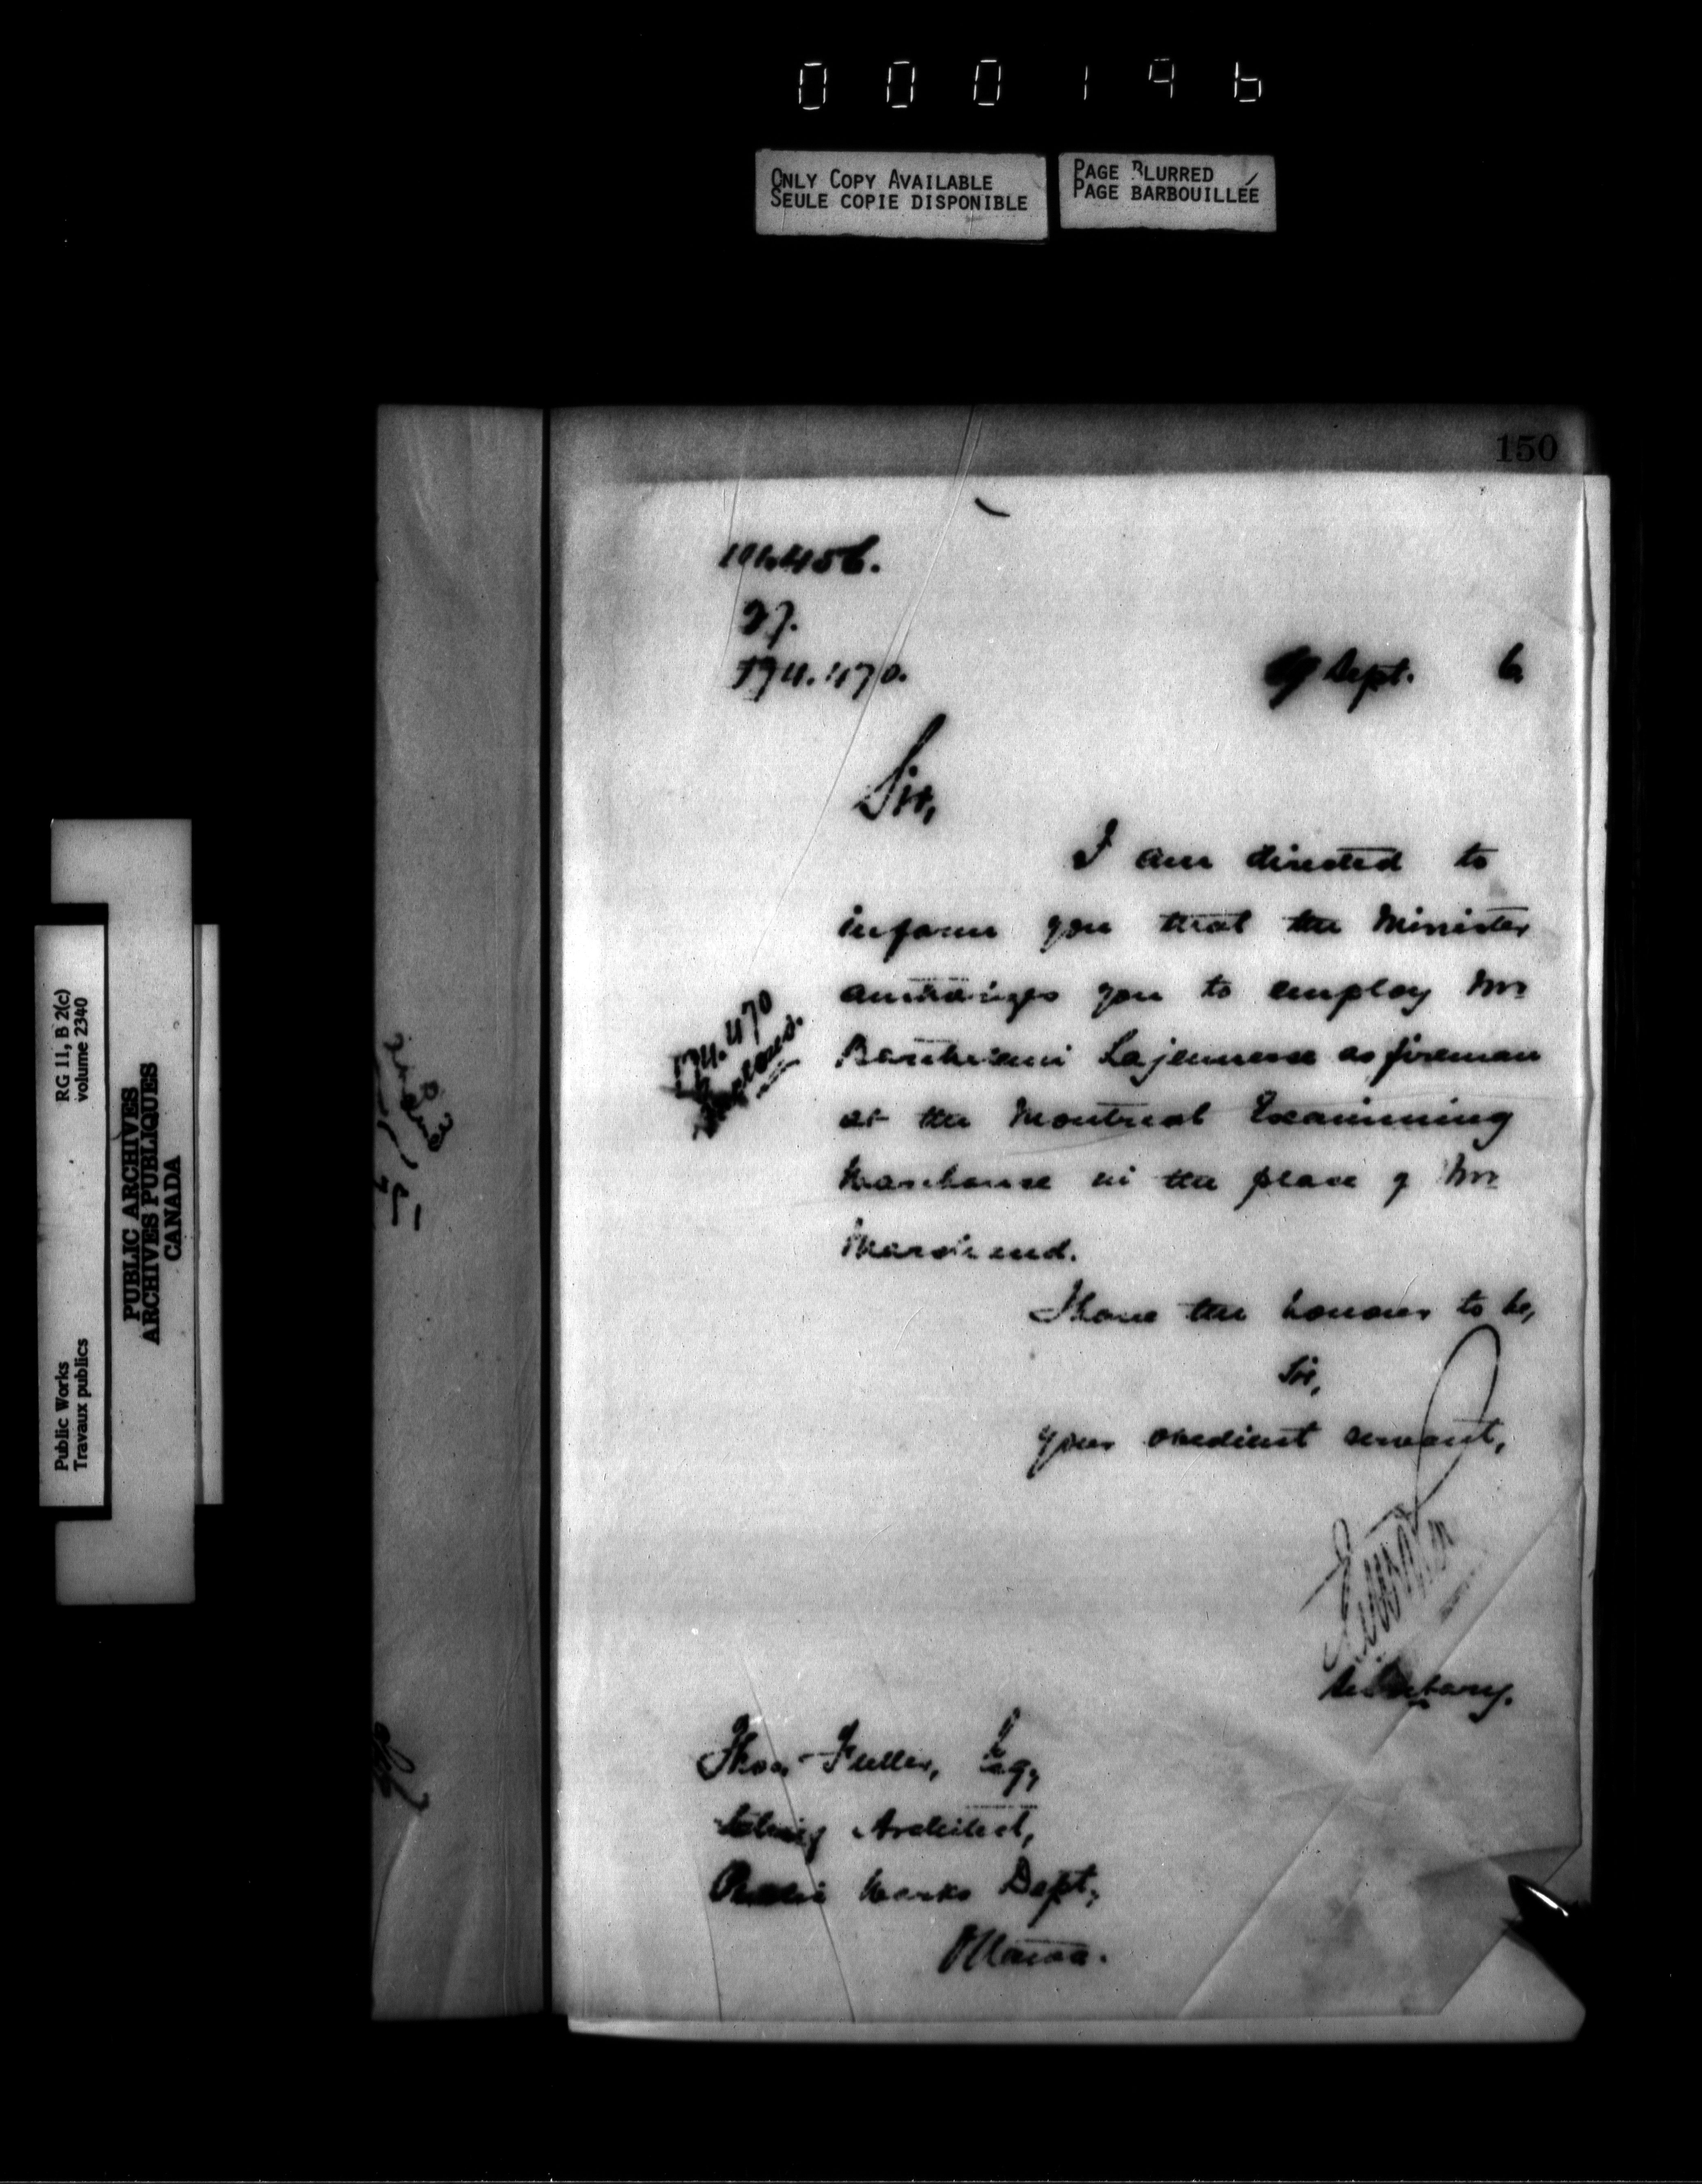 000196
ONLY COPY AVAILABLE
SEULE COPIE DISPONIBLE
PAGE BLURRED
PAGE BARBOUILLÉE
150
27.
174.470.
Sept. 6
Sir,
I am directed to
inform you that the Minister
authorizes you to employ Mr
Lajeunesse as fireman
at the Montreal Examining
Warehouse in the place of Mr
Marchand.
174.470
I have the honour to be,
Sir,
Your obedient servant,
Secretary.
Thos Fuller, Esq,
Architect,
Public Works Dept,
Ottawa.
RG 11, B 2(c)
volume 2340
PUBLIC ARCHIVES
ARCHIVES PUBLIQUES
CANADA
Public Works
Travaux publics